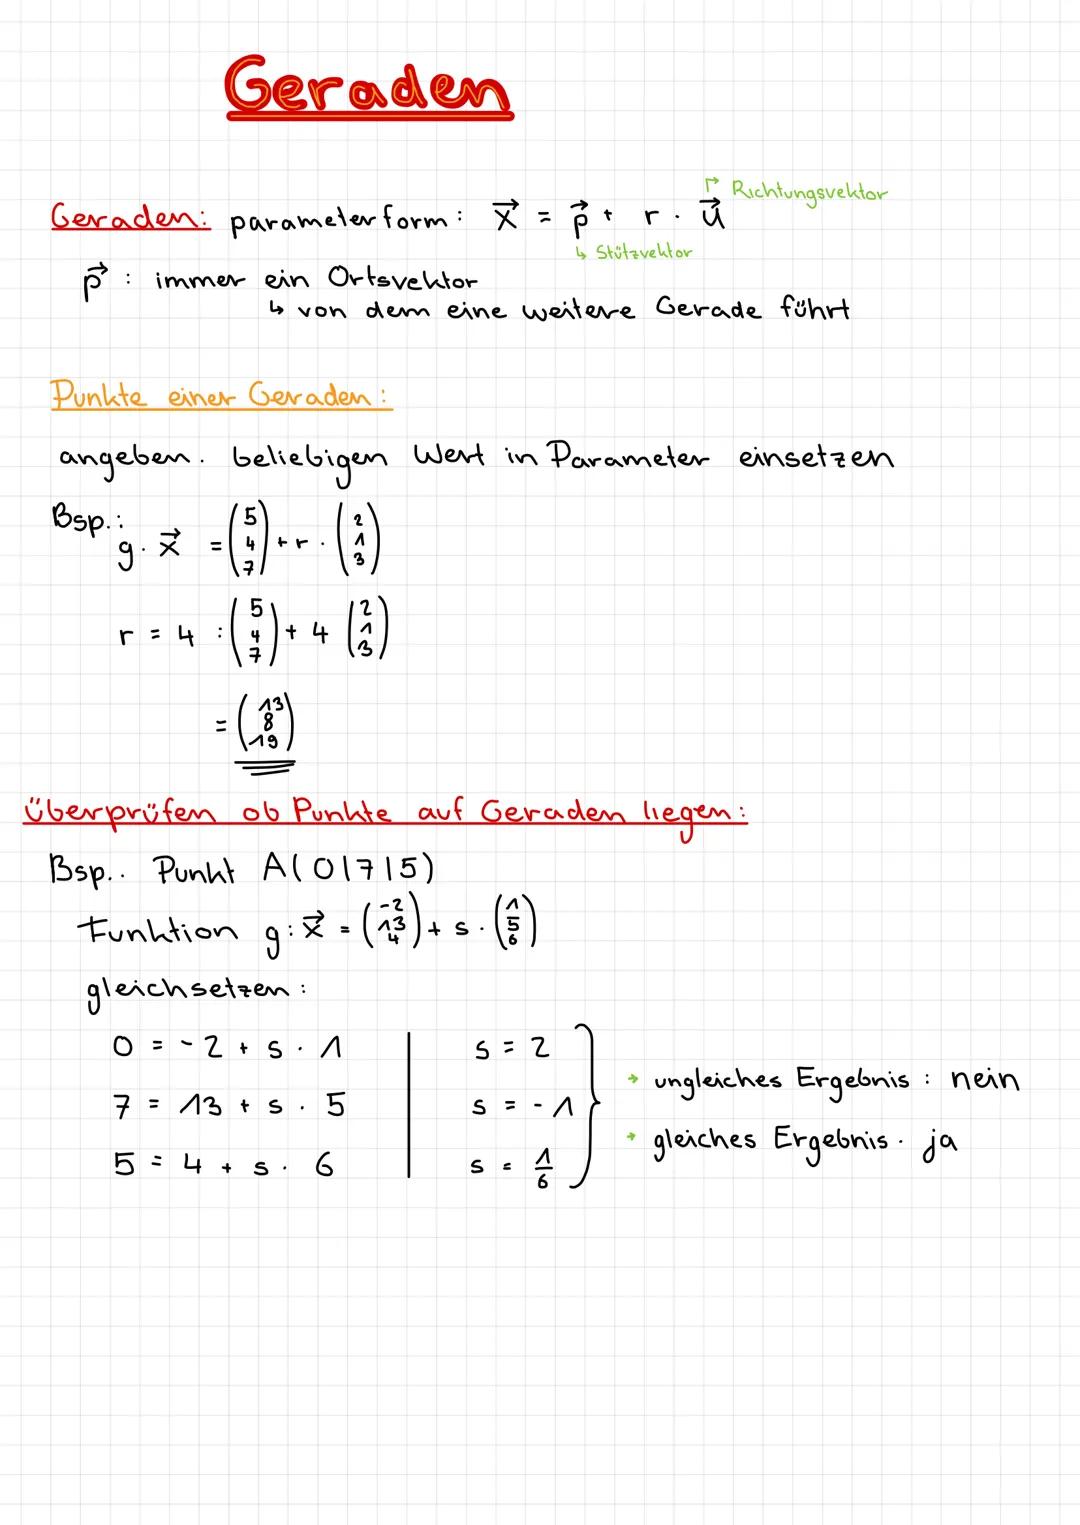 Geraden
Geraden: parameterform: x⃗ = p⃗ + r · u⃗
↱ Richtungsvektor
↳ Stützvektor
p⃗ : immer ein Ortsvektor
↳ von dem eine weitere Gerade führt
Punkte einer Geraden:
angeben. beliebigen Wert in Parameter einsetzen
Bsp.:
g. x⃗ = (5 4 7) + r · (2 1 3)
r = 4 : (5 4 7) + 4 (2 1 3)
= (13 8 19)
überprüfen ob Punkte auf Geraden liegen:
Bsp.. Punkt A(0|7|5)
Funktion g: x⃗ = (-2 13 4) + s · (1 5 6)
gleichsetzen:
0 = -2 + s · 1 | s = 2
7 = 13 + s · 5 | s = -1
5 = 4 + s · 6 | s = 1/6
→ ungleiches Ergebnis : nein
→ gleiches Ergebnis · ja